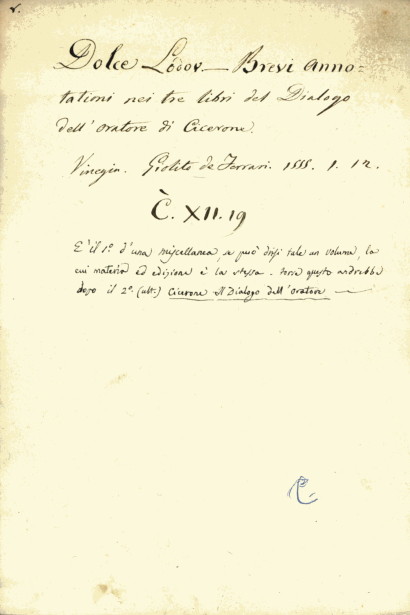 r.
Dolce Lodov. — Brevi anno=
tationi nei tre libri del Dialogo
dell'Oratore di Cicerone.
Vinegia. Giolito de Ferrari. 1555. 1. 12.
C. XII. 19
E' il 1º d'una miscellanea, se può dirsi tale un volume, la
cui materia ed edizione è la stessa - forse questo andrebbe
dopo il 2º. (ult.) Cicerone Il Dialogo dell'Oratore —